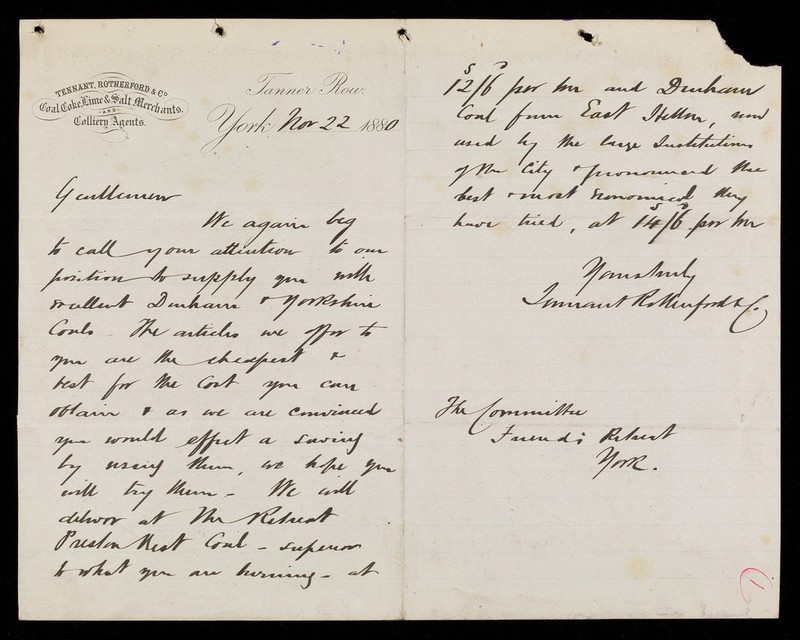 TENNANT, ROTHERFORD & Co
Coal, Coke, Lime & Salt Merchants,
AND
Colliery Agents.
Tanner Row.
York, Nov 22 1880
Gentlemen
We again beg
to call your attention to our
position to supply you with
excellent Durham & Yorkshire
Coals - The articles we offer to
you are the cheapest &
best for the Cost you can
obtain & as we are convinced
you would effect a saving
by using them, we hope you
will try them - We will
deliver at The Retreat
Preston West Coal - superior
to what you are burning - at
12s/6d per ton and Durham
Coal from East Hetton, now
used by the large Institutions
of the City & pronounced the
best & most economical they
have tried, at 14s/6d per ton
Yours truly
Tennant Rotherford & Co.
The Committee
Friends Retreat
York.
1